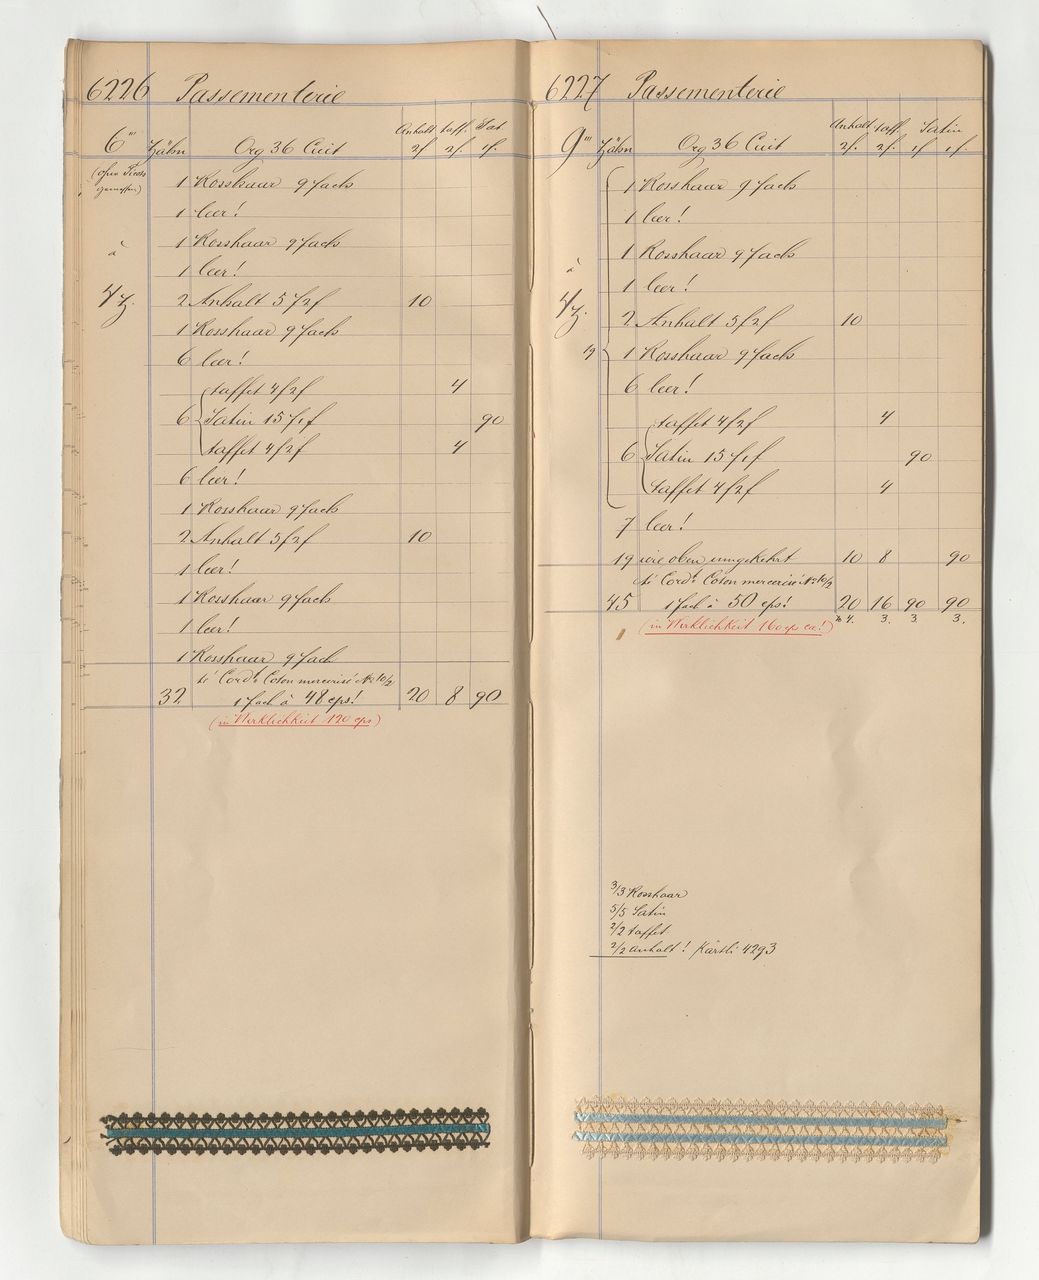 6226 Passementerie
Anhalt taff. Sat
6''' Zähn Org 36 Cuit 2f. 2f. 1f.
(ohne Picots
gemessen)
1 Rosshaar 9 fach
1 leer!
1 Rosshaar 9 fach
à
1 leer!
4 Z. 2 Anhalt 5 f 2 f 10
1 Rosshaar 9 fach
6 leer!
taffet 4 f 2 f 4
6 Satin 15 f 1 f 90
taffet 4 f 2 f 4
6 leer!
1 Rosshaar 9 fach
2 Anhalt 5 f 2 f 10
1 leer!
1 Rosshaar 9 fach
1 leer!
1 Rosshaar 9 fach
Cord. Coton mercerisé No 10/2
32 1 fach à 48 cps! 20 8 90
(in Wirklichkeit 120 cps)
6227 Passementerie
Anhalt taff. Satin
9''' Zähn Org 36 Cuit 2f. 2f. 1f 1f.
1 Rosshaar 9 fach
1 leer!
1 Rosshaar 9 fach
à
1 leer!
4 Z. 2 Anhalt 5 f 2 f 10
19 1 Rosshaar 9 fach
6 leer!
taffet 4 f 2 f 4
6 Satin 15 f 1 f 90
taffet 4 f 2 f 4
7 leer!
19 wie oben umgekehrt 10 8 90
Cord. Coton mercerisé No 10/2
45 1 fach à 50 cps! 20 16 90 90
4. 3. 3. 3.
(in Wirklichkeit 160 cps ca!)
3/3 Rosshaar
5/5 Satin
2/2 taffet
2/2 Anhalt! Kärtli 4293